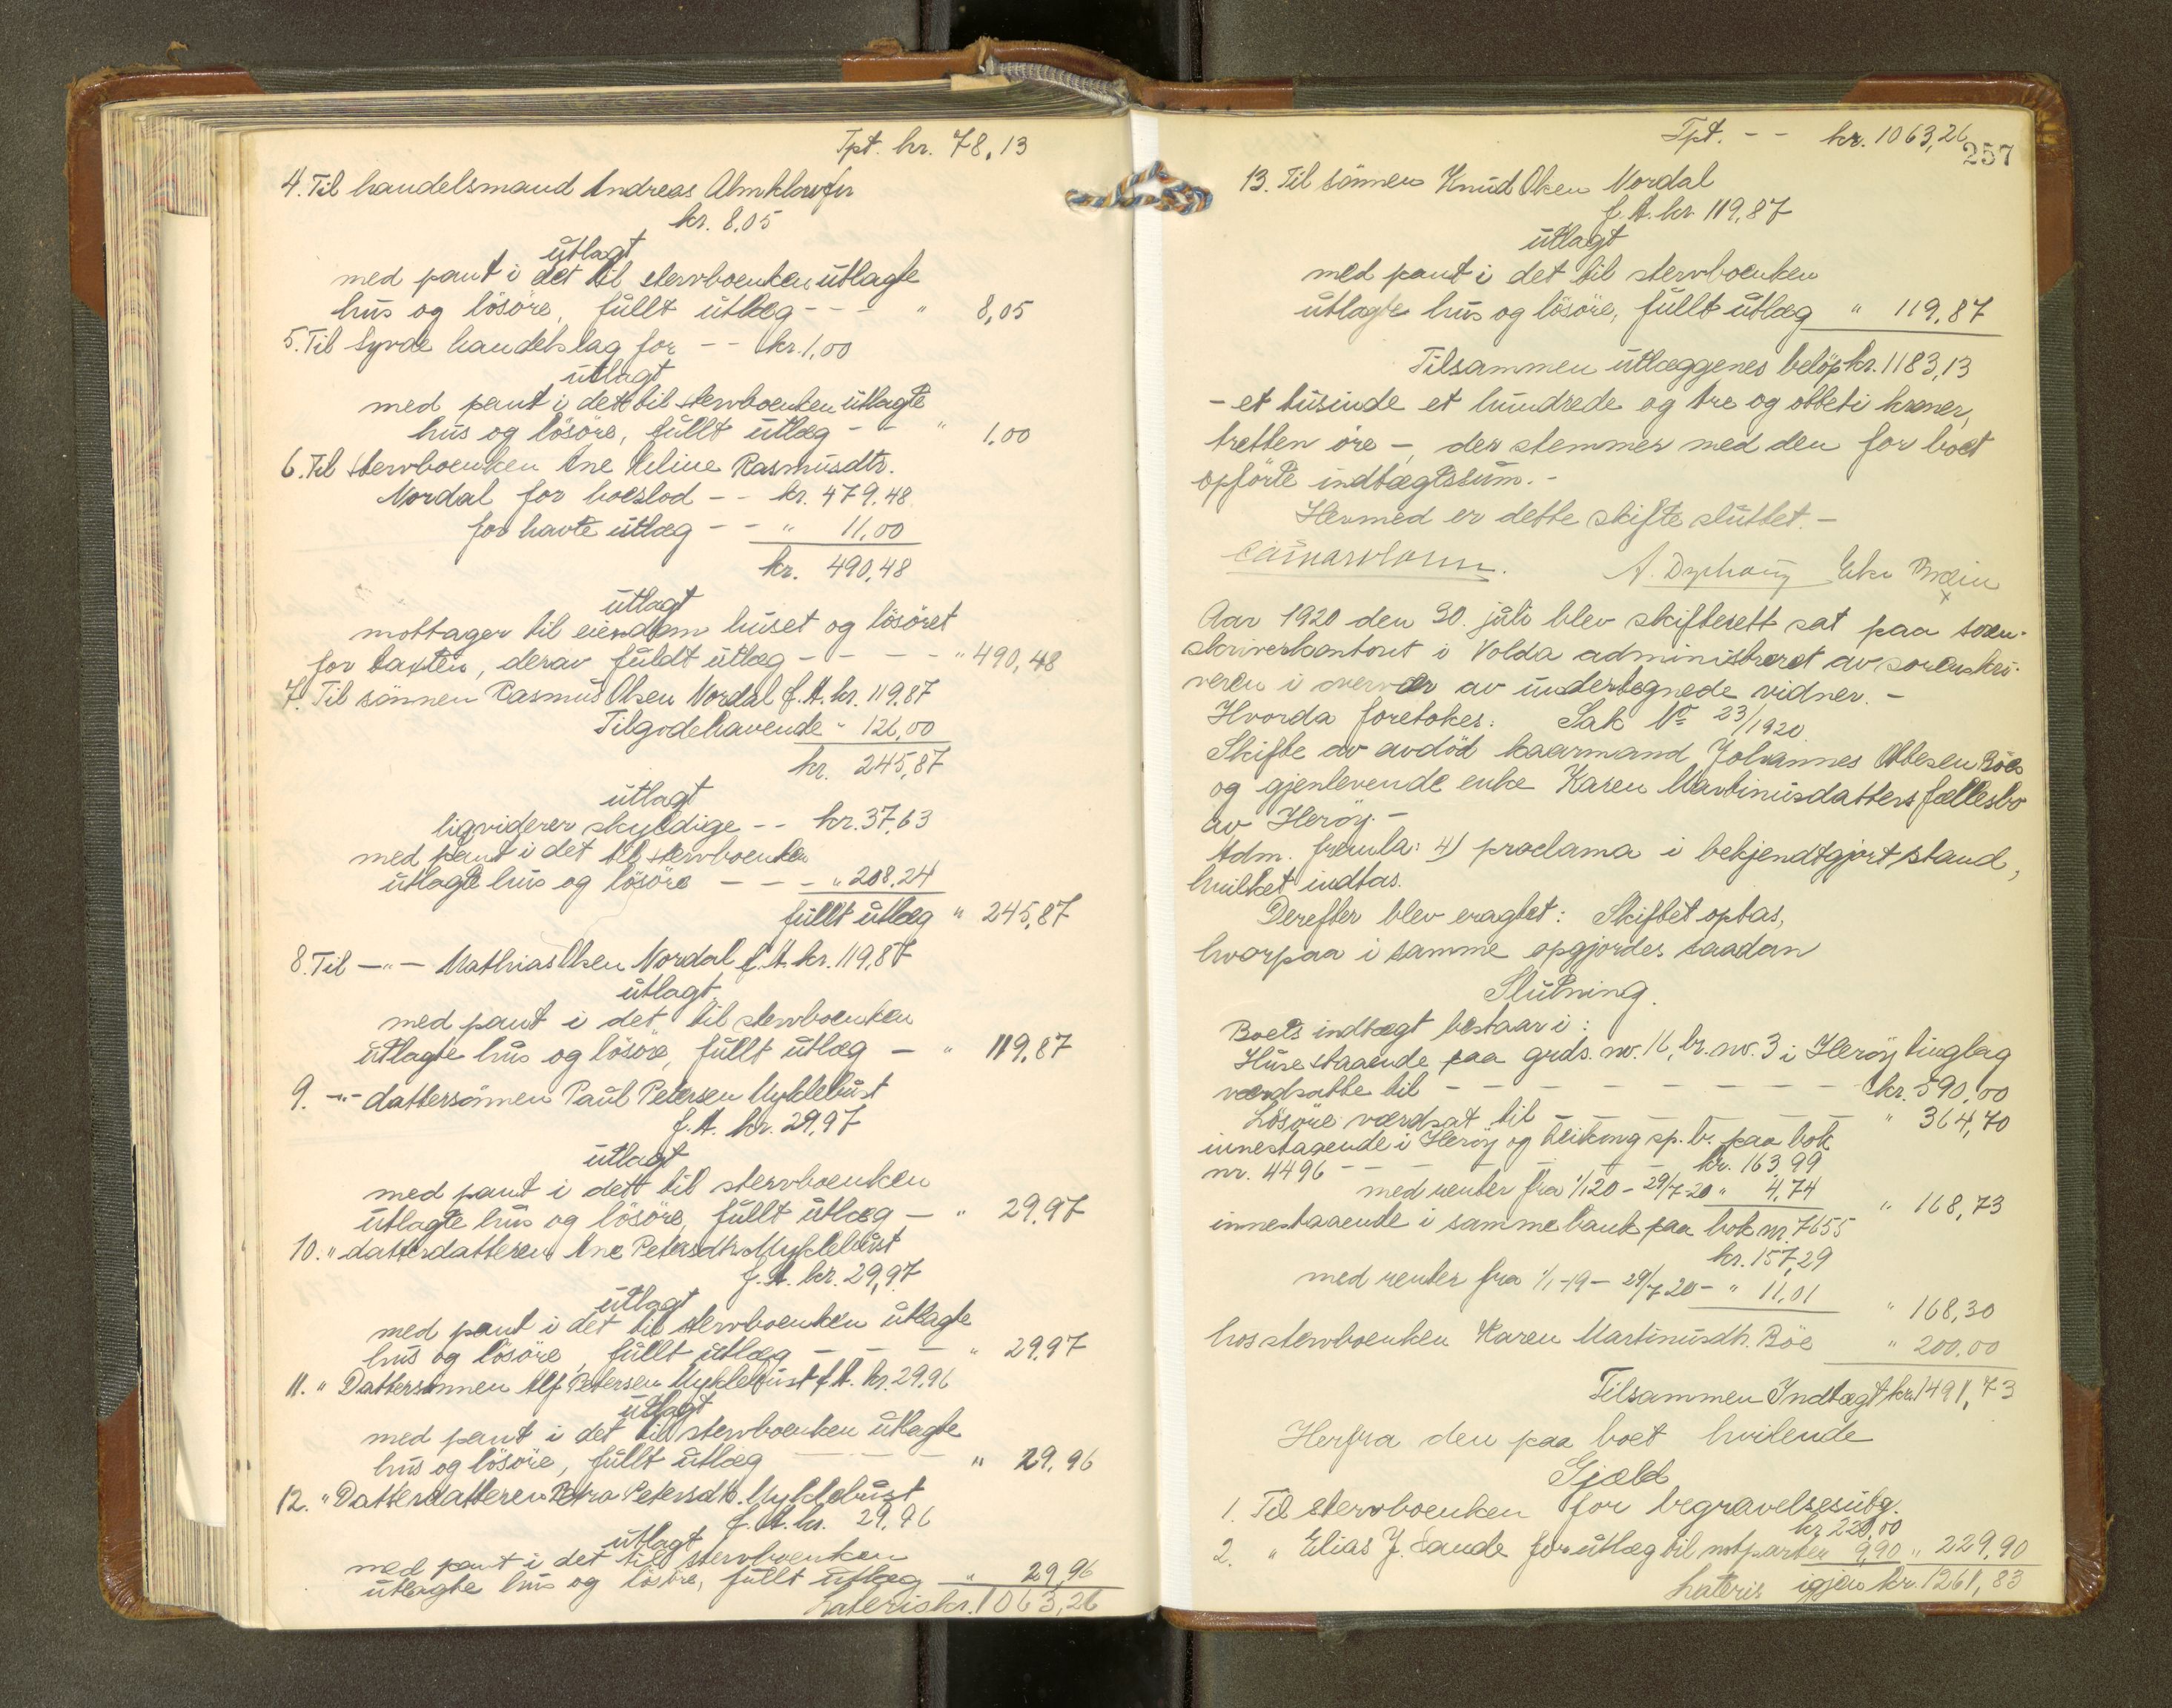 Tpt. kr. 78,13
4. Til handelsmand Andreas Almklov for
kr. 8,05
utlagt
med pant i det til stervboenken utlagte
hus og lösöre, fullt utlæg - - - " 8,05
5. Til Syvde handelslag for - - kr. 1,00
utlagt
med pant i dett til stervboenken utlagte
hus og lösöre, fullt utlæg - - " 1.00
6. Til stervboenken Ane Rasmusdtr.
Nordal for boeslod - - kr. 479.48
for havte utlæg - - " 11,00
kr. 490,48
utlagt
mottager til eiendom huset og lösöret
for taxten, derav fuldt utlæg - - - - " 490,48
7. Til sönnen Rasmus Olsen Nordal f. A. kr. 119,87
Tilgodehavende " 126,00
kr. 245,87
utlagt
liqviderer skyldige - - kr. 37,63
med pant i det til stervboenken
utlagte hus og lösöre - - - " 208,24
fullt utlæg " 245,87
8. Til -"- Mathias Olsen Nordal f. A. kr. 119,87
utlagt
med pant i det til stervboenken
utlagte hus og lösöre, fullt utlæg - " 119,87
9. -"- dattersönnen Paul Petersen Myklebust
f. A. kr. 29,97
utlagt
med pant i dett til stervboenken
utlagte hus og lösöre, fullt utlæg - " 29,97
10. " datterdatteren Ane Petersdtr. Myklebust
f. A. kr. 29,97
utlagt
med pant i det til stervboenken utlagte
hus og lösöre, fullt utlæg - - - " 29,97
11. " Dattersönnen Alf Petersen Myklebust f. A. kr. 29,96
utlagt
med pant i det til stervboenken utlagte
hus og lösöre, fullt utlæg - - - " 29,96
12. " Datterdatteren Petra Petersdtr. Myklebust
f. A. kr. 29,96
utlagt
med pant i det til stervboenken
utlagte hus og lösöre, fullt utlæg - " 29,96
Lateris kr. 1063,26
Tpt. - - kr. 1063,26
257
13. Til sönnen Knud Olsen Nordal
f. A. kr. 119,87
utlagt
med pant i det til stervboenken
utlagte hus og lösöre, fullt utlæg " 119,87
Tilsammen utlæggenes belöp kr. 1183,13
- et tusinde et hundrede og tre og otteti kroner,
tretten öre -, der stemmer med den for boet
opförte indtægtssum. -
Hermed er dette skifte sluttet. -
Aar 1920 den 30. juli blev skifterett sat paa soren-
skriverkontoret i Volda administreret av sorenskri-
veren i overvær av undertegnede vidner. -
Hvorda foretokes: Sak No 23/1920.
Skifte av avdöd kaarmand Johannes Ottesen Böes
og gjenlevende enke Karen Martinusdatters fællesbo
av Heröy. -
Adm. fremla: 4) proclama i bekjendtgjort stand,
hvilket indtas.
Derefter blev eragtet: Skiftet optas,
hvorpaa i samme opgjordes saadan
Slutning.
Boets indtægt bestaar i:
Huse staaende paa grds. nr. 16, br. nr. 3 i Heröy tinglag
værdsatte til - - - - - - - - kr. 590,00
Lösöre værdsat til - - - - - - " 364,70
innestaaende i Heröy og Leikong sp. b. paa bok
nr. 4496 - - - - - - - kr. 163,99
med renter fra 1/1 20 - 29/7-20 " 4,74 " 168,73
innestaaende i samme bank paa bok nr. 7655
kr. 157,29
med renter fra 1/1-19 - 29/7 20 - " 11,01 " 168,30
hos stervboenken Karen Martinusdtr. Böe " 200,00
Tilsammen Indtægt kr. 1491,73
Herfra den paa boet hvilende
Gjæld
1. Til stervboenken for begravelsesutg.
kr. 220,00
2. " Elias J. Sande for utlæg til motparten 9,90 " 229,90
Lateris igjen kr. 1261,83